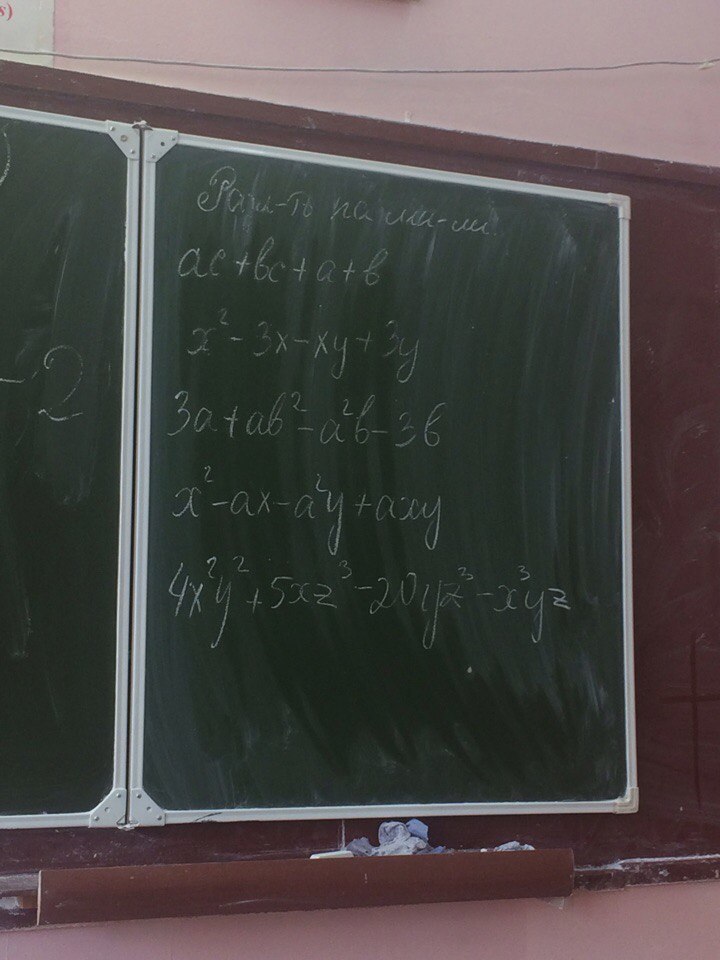 s)
- 2
Разл-ть на мн-ли
ac+bc+a+b
x²-3x-xy+3y
3a+ab²-a²b-3b
x²-ax-a²y+axy
4x²y²+5xz³-20yz³-x³yz